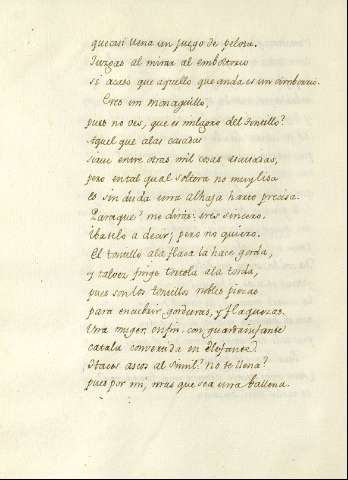 que casi llena un juego de pelota.
Juzgas al mirar al emboltorio
se acaso que aquello que anda es un cimborrio.
Eres un monaguillo,
pues no ves, que es milagro del tontillo?
Aquel que a las casadas
sirve entre otras mil cosas escusadas,
pero en tal qual soltera no muy lisa
es sin duda una alhaja harto precisa.
Paraque? me dirás: eres sincero.
Ibatelo a decir; pero no quiero.
El tontillo ala flaca la hace gorda,
y talvez finge tortola ala torda,
pues son los tontillos nobles piezas
para encubrir gorduras, y flaquezas.
Una muger enfin con guardainfante
catala convertida en Elefante
Haces ascos al simil? no te llena?
pues por mi, mas que sea una ballena.